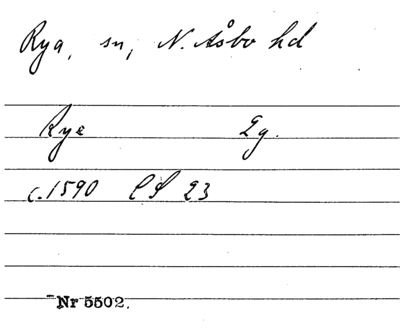 Rya, sn, N. Åsbo hd
Rye 2g.
c.1590 LS 23
Nr 5502.